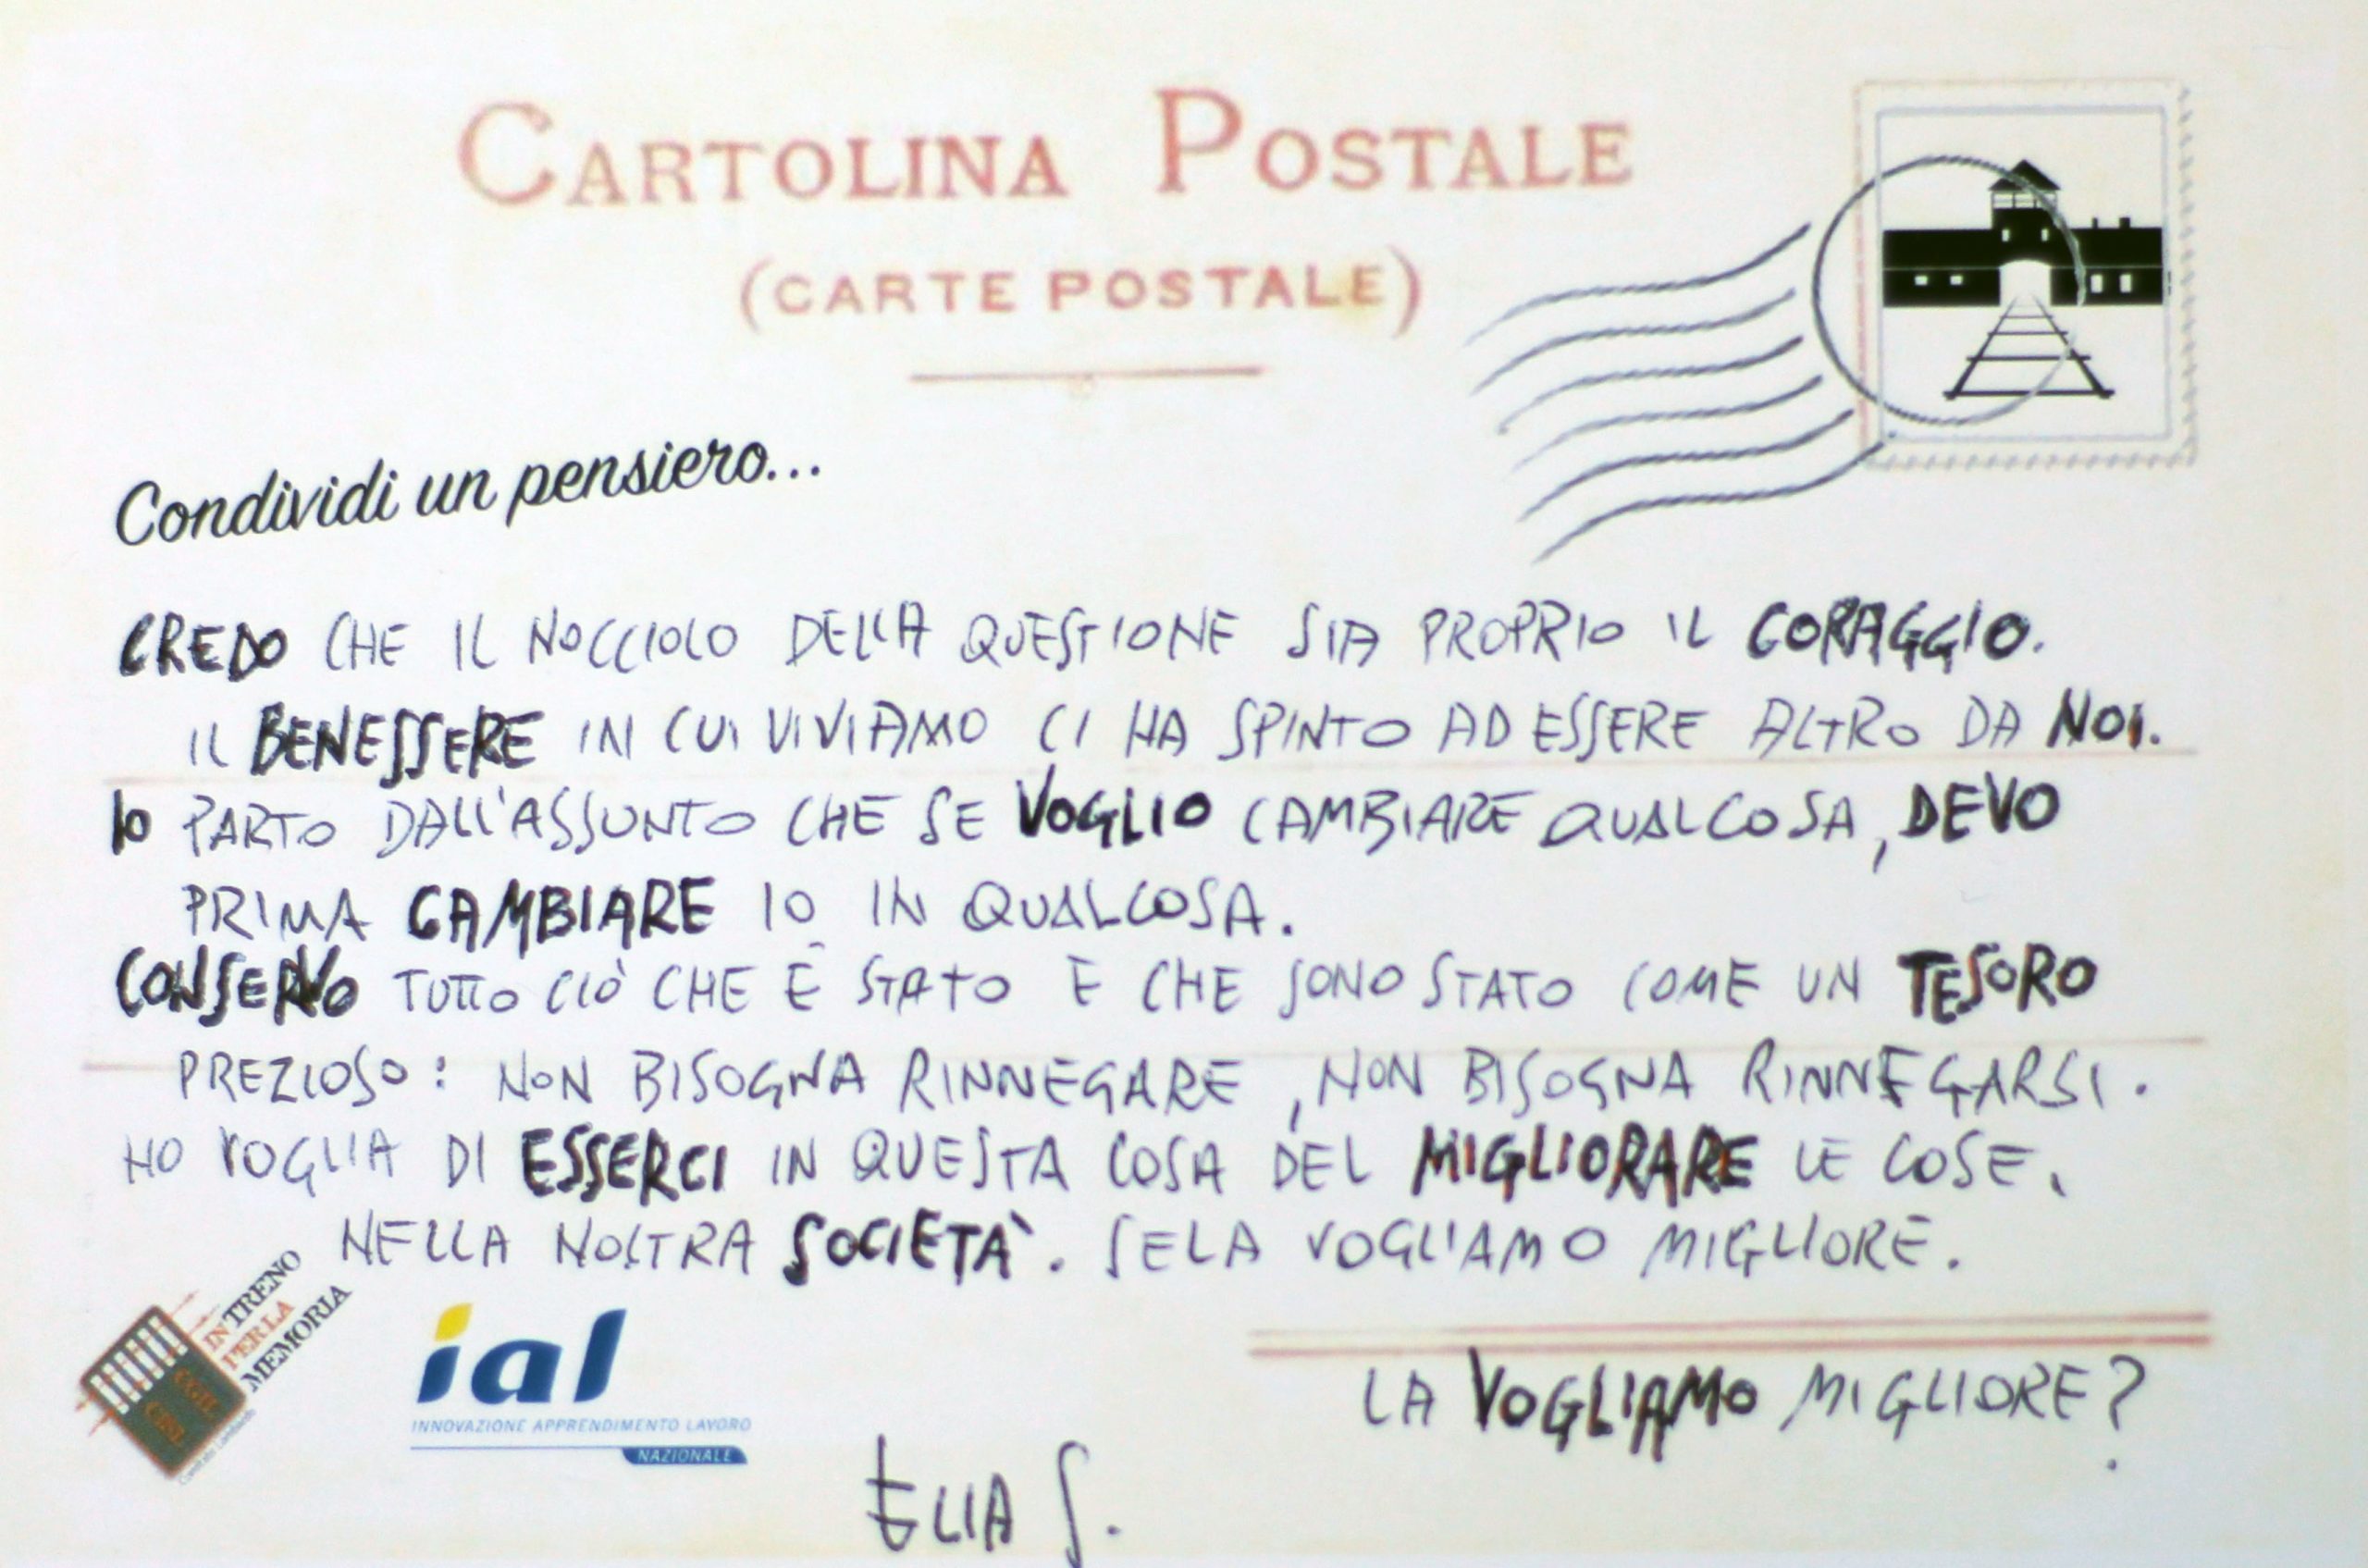 CARTOLINA POSTALE
(CARTE POSTALE)
Condividi un pensiero...
CREDO CHE IL NOCCIOLO DELLA QUESTIONE SIA PROPRIO IL CORAGGIO.
IL BENESSERE IN CUI VIVIAMO CI HA SPINTO AD ESSERE ALTRO DA NOI.
IO PARTO DALL'ASSUNTO CHE SE VOGLIO CAMBIARE QUALCOSA, DEVO
PRIMA CAMBIARE IO IN QUALCOSA.
CONSERVO TUTTO CIÒ CHE È STATO E CHE SONO STATO COME UN TESORO
PREZIOSO: NON BISOGNA RINNEGARE, NON BISOGNA RINNEGARSI.
HO VOGLIA DI ESSERCI IN QUESTA COSA DEL MIGLIORARE LE COSE,
NELLA NOSTRA SOCIETÀ. SE LA VOGLIAMO MIGLIORE.
LA VOGLIAMO MIGLIORE?
IN TRENO
PER LA
MEMORIA
CGIL
CISL
ial
INNOVAZIONE APPRENDIMENTO LAVORO
NAZIONALE
ELIA S.